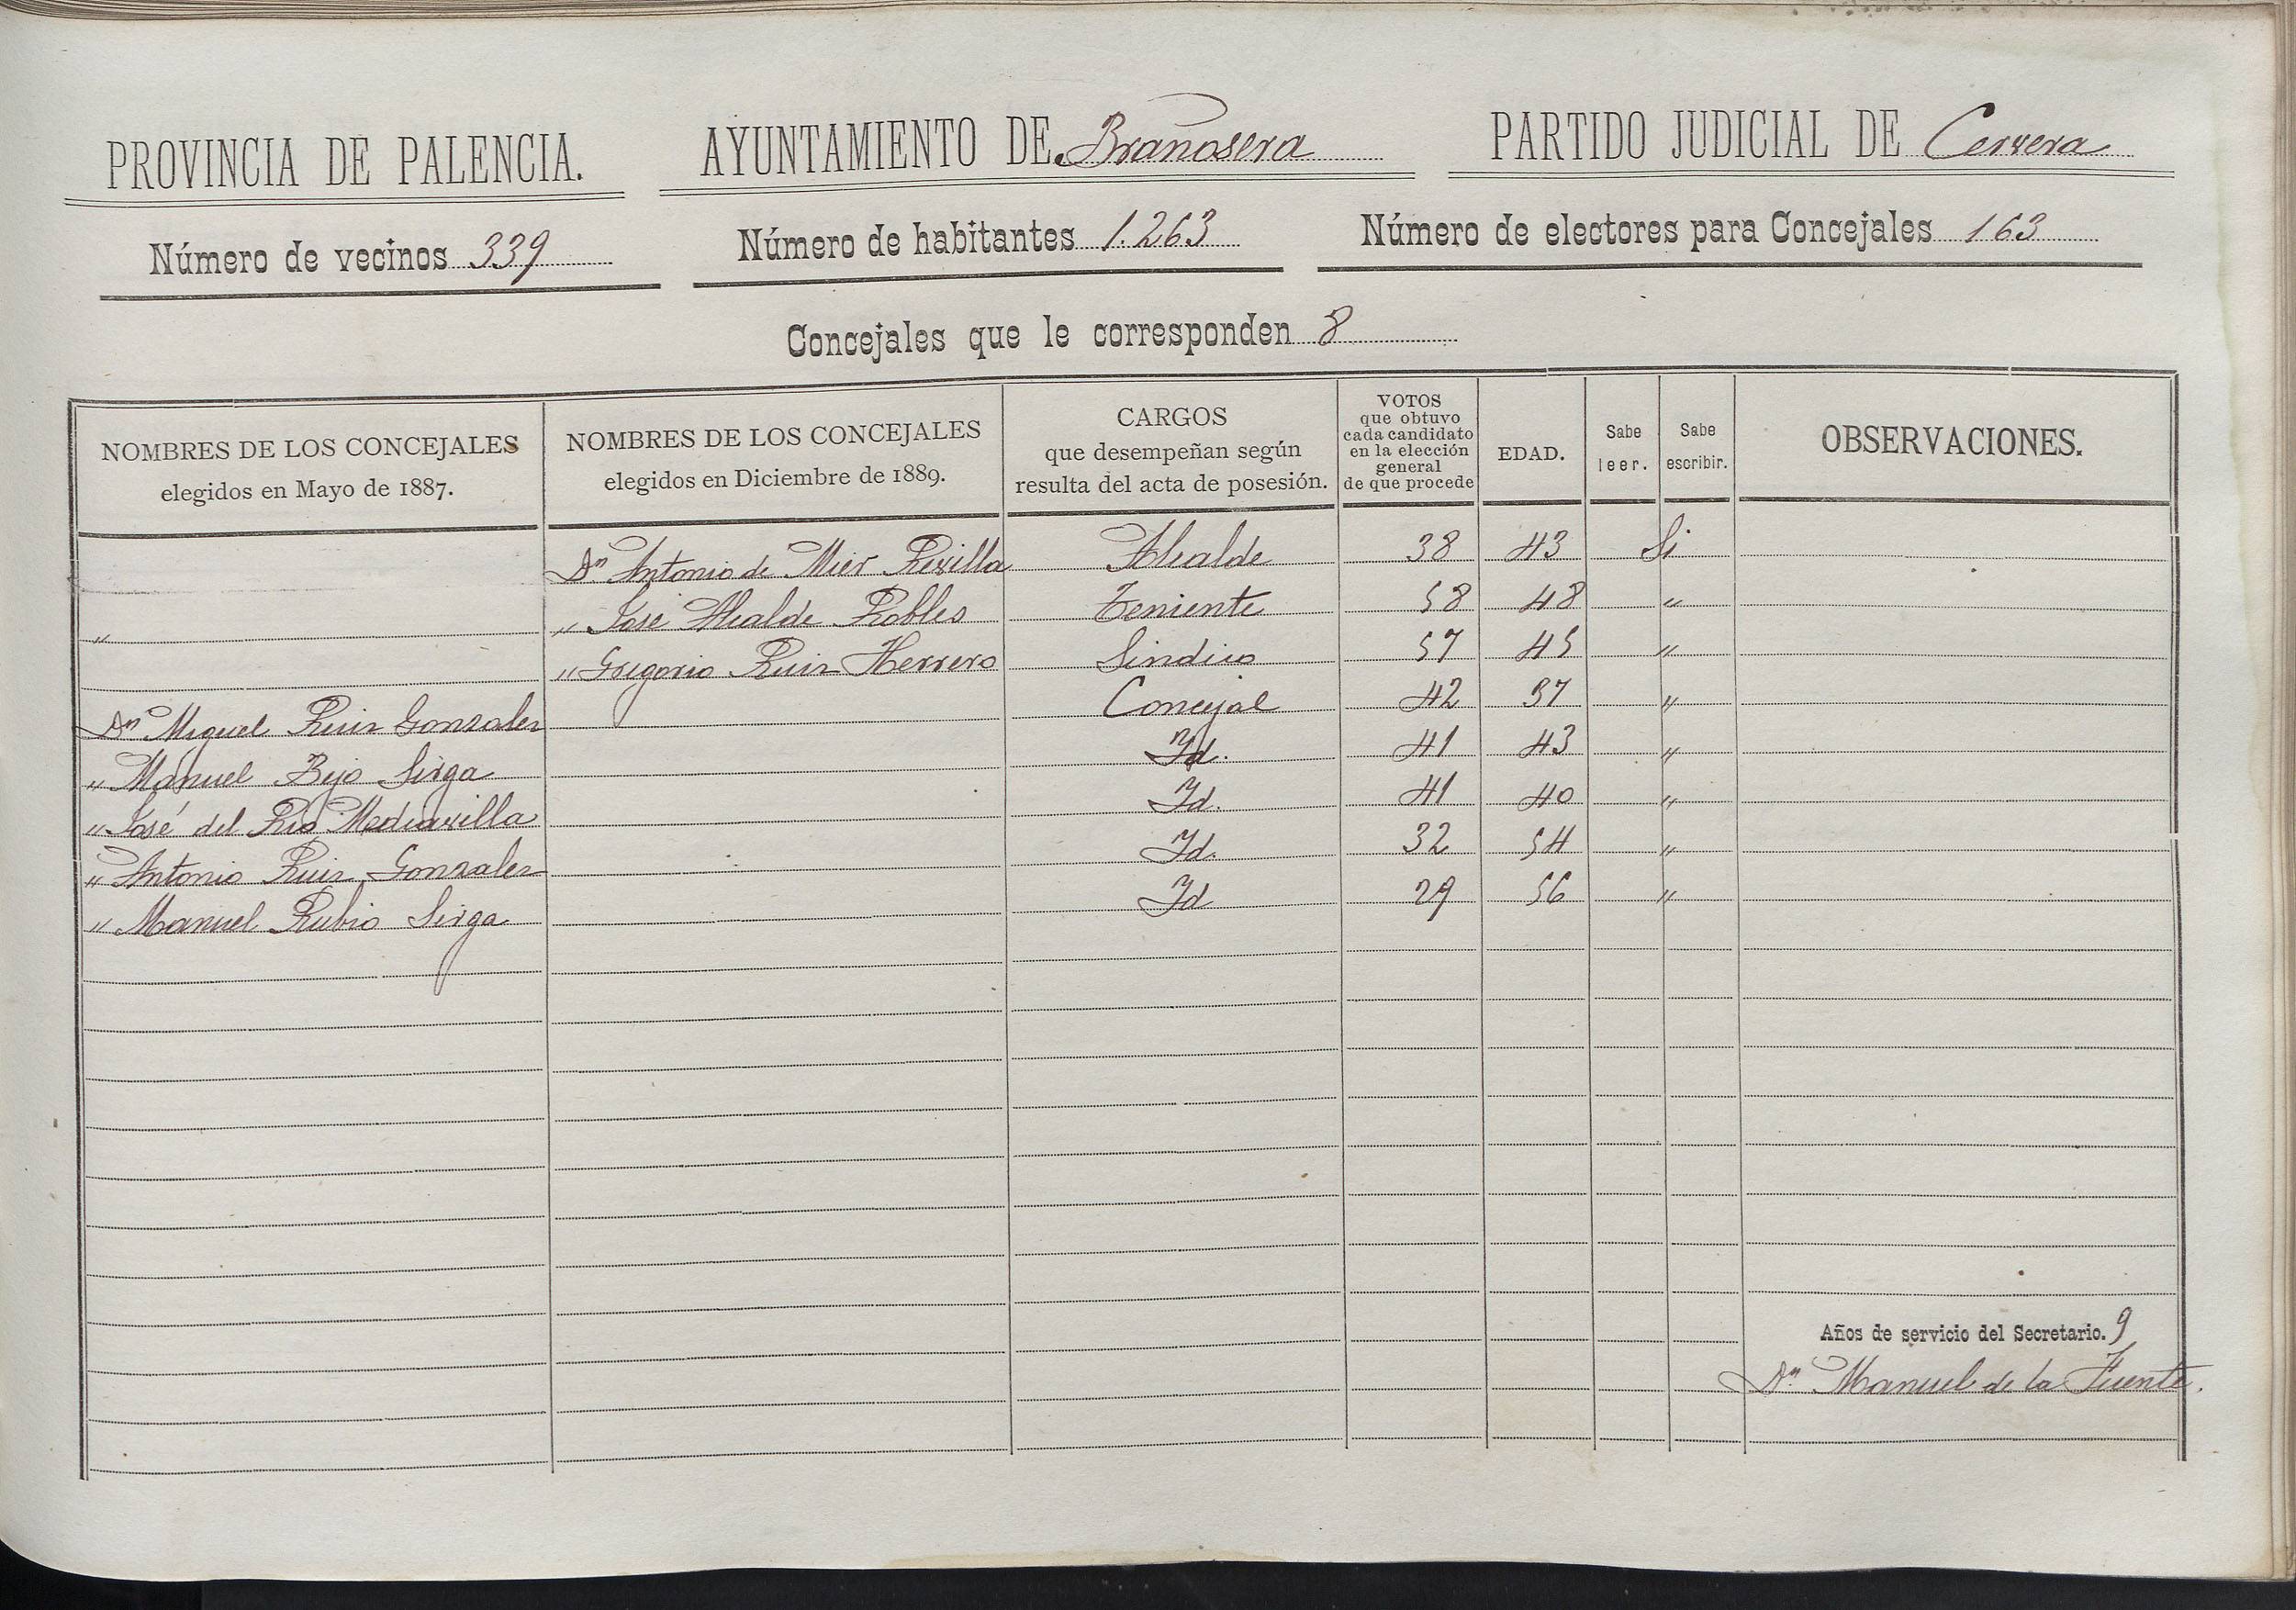 PROVINCIA DE PALENCIA. AYUNTAMIENTO DE Brañosera PARTIDO JUDICIAL DE Cervera
Número de vecinos 339 Número de habitantes 1.263 Número de electores para Concejales 163
Concejales que le corresponden 8
NOMBRES DE LOS CONCEJALES elegidos en Mayo de 1887. NOMBRES DE LOS CONCEJALES elegidos en Diciembre de 1889. CARGOS que desempeñan según resulta del acta de posesión. VOTOS que obtuvo cada candidato en la elección general de que procede EDAD. Sabe leer. Sabe escribir. OBSERVACIONES.
Dn Antonio de Mier Revilla Alcalde 38 43 Si
" " José Alcalde Robles Teniente 58 48 "
" Gregorio Ruiz Herrero Sindico 57 45 "
Dn Miguel Ruiz Gonzalez Concejal 42 37 "
" Manuel Bejo Sirga Id. 41 43 "
" José del Rio Mediavilla Id. 41 40 "
" Antonio Ruiz Gonzalez Id. 32 54 "
" Manuel Rubio Sirga Id 29 56 "
Años de servicio del Secretario. 9
Dn Manuel de la Fuente.